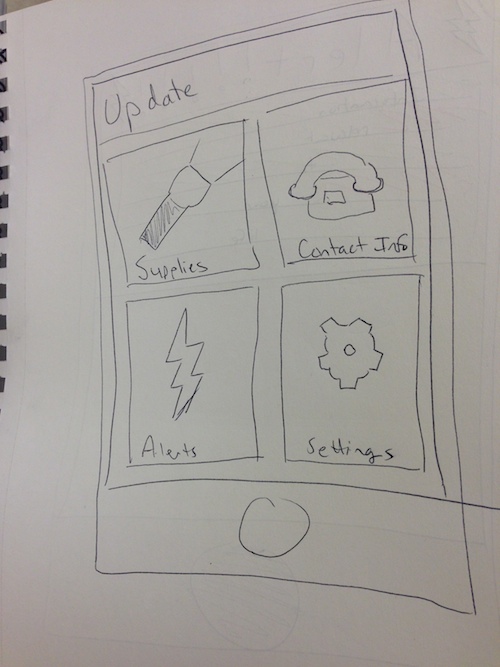 Update
Supplies
Contact Info
Alerts
Settings